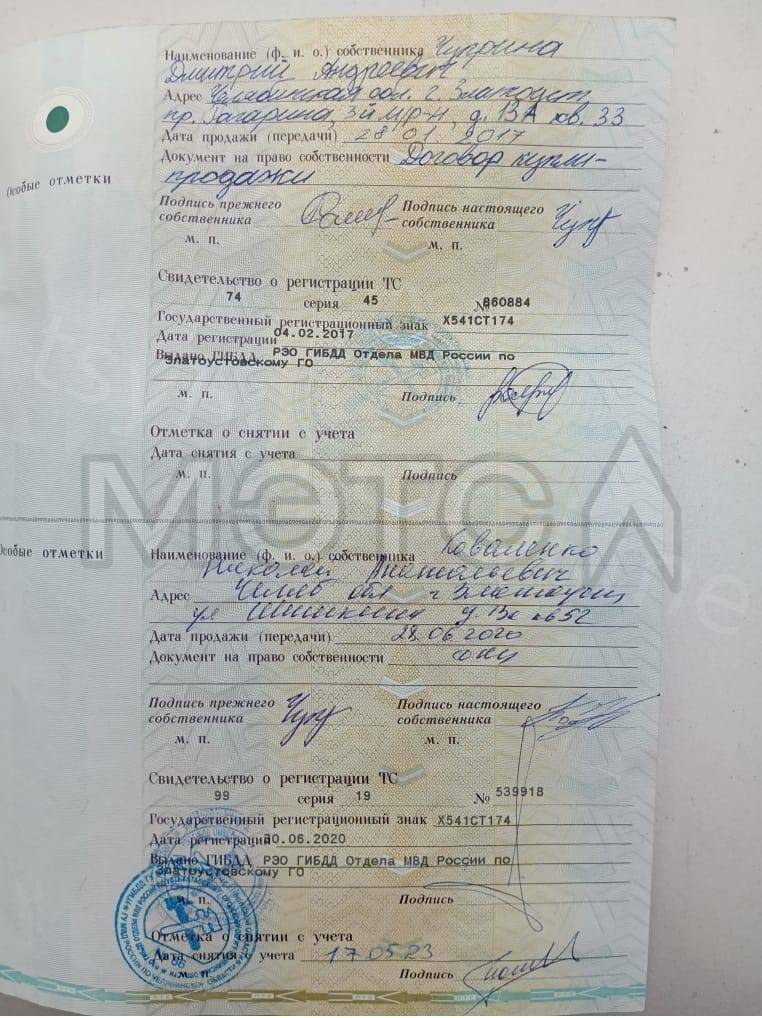 Наименование (ф. и. о.) собственника Чуприна
Дмитрий Андреевич
Адрес Челябинская обл. г. Златоуст
пр. Гагарина, 3й мр-н, д. 13А кв. 33
Дата продажи (передачи) 28 01. 2017
Документ на право собственности Договор купли-
продажи
Особые отметки
Подпись прежнего собственника
Подпись настоящего собственника
м. п.
м. п.
Свидетельство о регистрации ТС
74 серия 45 № 860884
Государственный регистрационный знак Х541СТ174
Дата регистрации 04.02.2017
Выдано ГИБДД РЭО ГИБДД Отдела МВД России по
Златоустовскому ГО
м. п. Подпись
Отметка о снятии с учета
Дата снятия с учета
м. п. Подпись
МЭТС
Особые отметки
Наименование (ф. и. о.) собственника Коваленко
Николай Анатольевич
Адрес Челяб обл г Златоуст
ул Шишкина д. 13а кв 52
Дата продажи (передачи) 28.06 2020
Документ на право собственности
Подпись прежнего собственника
Подпись настоящего собственника
м. п.
м. п.
Свидетельство о регистрации ТС
99 серия 19 № 539918
Государственный регистрационный знак Х541СТ174
Дата регистрации 30.06.2020
Выдано ГИБДД РЭО ГИБДД Отдела МВД России по
Златоустовскому ГО
м. п. Подпись
Отметка о снятии с учета
Дата снятия с учета 17 05.23
м. п. Подпись